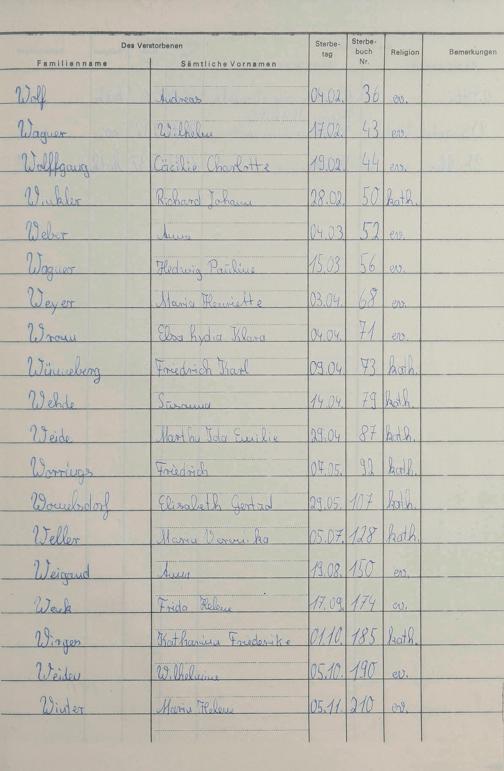 Des Verstorbenen
Familienname Sämtliche Vornamen Sterbe-tag Sterbe-buch Nr. Religion Bemerkungen
Wolf Andreas 04.02. 36 ev.
Wagner Wilhelm 17.02. 43 ev.
Wolffgang Cäcilie Charlotte 19.02. 44 ev.
Winkler Richard Johann 28.02. 50 kath.
Weber Anna 04.03 52 ev.
Wagner Hedwig Pauline 15.03 56 ev.
Weyer Maria Henriette 03.04. 68 ev.
Elsa Lydia Klara 04.04. 71 ev.
Wünneberg Friedrich Karl 09.04 73 kath.
Wehde Susanna 14.04. 79 kath.
Weide Martha Ida Emilie 29.04 87 kath.
Worrings Friedrich 07.05. 92 kath.
Elisabeth Gertrud 29.05. 107 kath.
Weller Maria Veronika 05.07. 128 kath.
Weigand Anna 19.08. 150 ev.
Wenk Frida Helene 17.09. 174 ev.
Wirgen Katharina Friederike 01.10. 185 kath.
Weiden Wilhelmine 05.10. 190 ev.
Winter Maria Helene 05.11. 210 ev.